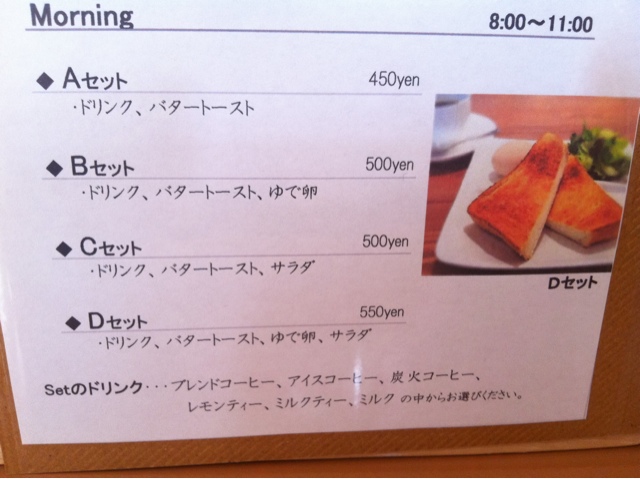 Morning 8:00～11:00
◆ Aセット 450yen
・ドリンク、バタートースト
◆ Bセット 500yen
・ドリンク、バタートースト、ゆで卵
◆ Cセット 500yen
・ドリンク、バタートースト、サラダ
Dセット
◆ Dセット 550yen
・ドリンク、バタートースト、ゆで卵、サラダ
Setのドリンク・・・ブレンドコーヒー、アイスコーヒー、炭火コーヒー、
レモンティー、ミルクティー、ミルク の中からお選びください。